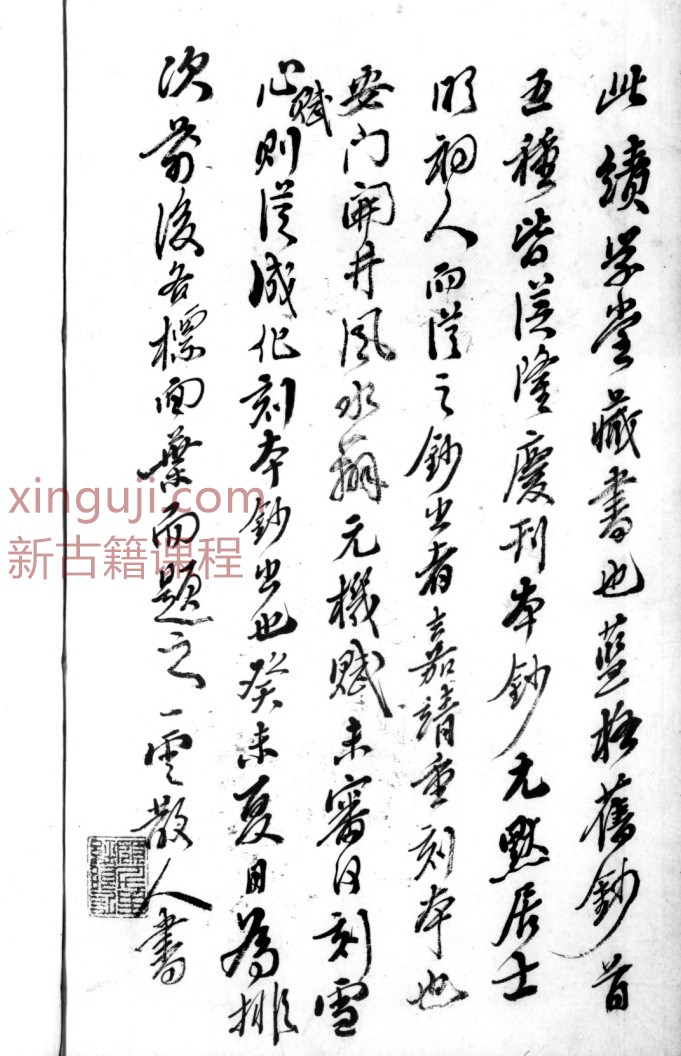 此績學堂藏書也藍格舊鈔首
五種皆從隆慶刊本鈔元默居士
明初人而從之鈔出者嘉靖重刻本也
安门開井風水辯元機賦未審何刻雪
心賦則從成化刻本鈔出也癸未夏日為排
次前後各標面葉而題之
一雲散人書
xinguji.com
新古籍课程